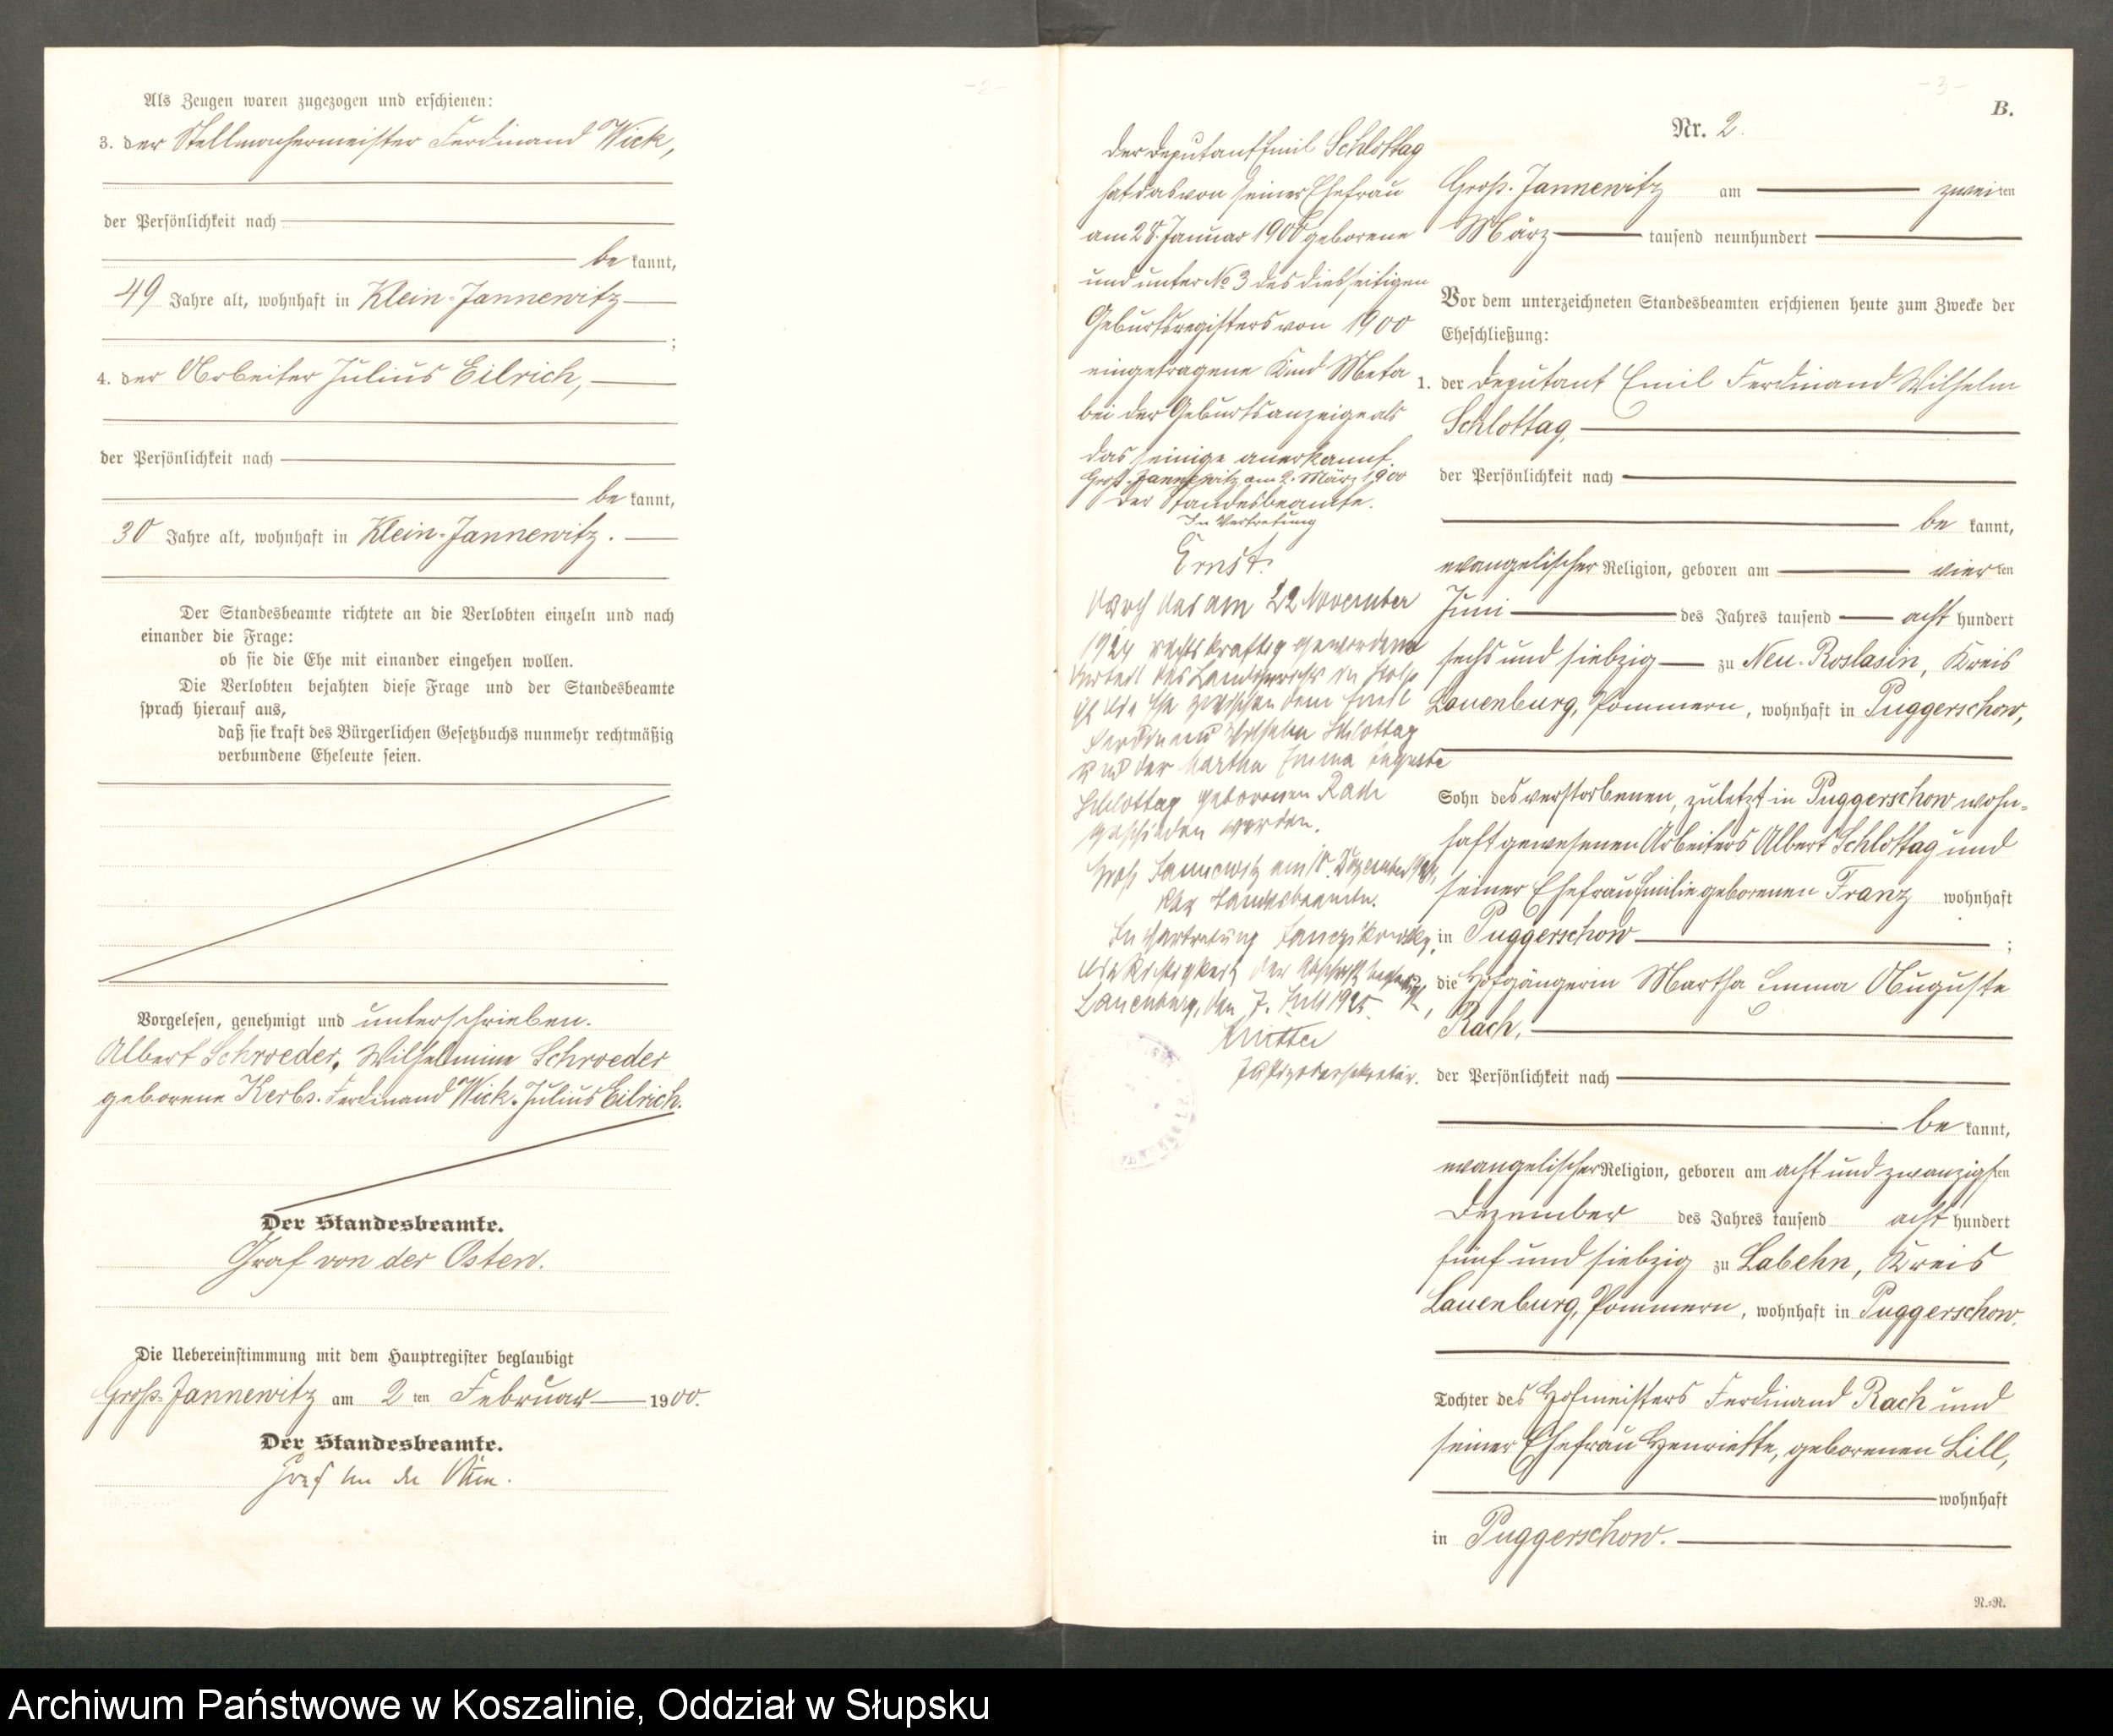 - 2 -
Als Zeugen waren zugezogen und erschienen:
3. der Stellmachermeister Ferdinand Wick,
der Persönlichkeit nach
be kannt,
49 Jahre alt, wohnhaft in Klein-Jannewitz
;
4. der Arbeiter Julius Eilrich,
der Persönlichkeit nach
be kannt,
30 Jahre alt, wohnhaft in Klein-Jannewitz.
Der Standesbeamte richtete an die Verlobten einzeln und nach
einander die Frage:
ob sie die Ehe mit einander eingehen wollen.
Die Verlobten bejahten diese Frage und der Standesbeamte
sprach hierauf aus,
daß sie kraft des Bürgerlichen Gesetzbuchs nunmehr rechtmäßig
verbundene Eheleute seien.
Vorgelesen, genehmigt und unterschrieben.
Albert Schroeder. Wilhelmine Schroeder
geborene Kerbs. Ferdinand Wick. Julius Eilrich.
Der Standesbeamte.
Graf von der Osten.
Die Uebereinstimmung mit dem Hauptregister beglaubigt
Groß-Jannewitz am 2 ten Februar 1900.
Der Standesbeamte.
Graf von der Osten.
- 3 -
B.
Nr. 2.
Der Deputant Emil Schlottag
hat das von seiner Ehefrau
am 28. Januar 1900 geborene
und unter No 3 des diesseitigen
Geburtsregisters von 1900
eingetragene Kind Meta
bei der Geburtsanzeige als
das seinige anerkannt.
Groß-Jannewitz am 2. März 1900
Der Standesbeamte.
In Vertretung
Ernst.
Durch das am 22 November
1924 rechtskräftig gewordene
Urteil des Landgerichts in Stolp
ist die Ehe zwischen dem Emil
Ferdinand Wilhelm Schlottag
und der Martha Emma Auguste
Schlottag geborenen Rach
geschieden worden.
Groß Jannewitz am 18. Dezember 1924.
Der Standesbeamte.
In Vertretung
Die Richtigkeit der Abschrift beglaubigt,
Lauenburg, den 7. Juli 1925.
Justizobersekretär.
Groß-Jannewitz am zwei ten
März tausend neunhundert
Vor dem unterzeichneten Standesbeamten erschienen heute zum Zwecke der
Eheschließung:
1. der Deputant Emil Ferdinand Wilhelm
Schlottag,
der Persönlichkeit nach
be kannt,
evangelischer Religion, geboren am vier ten
Juni des Jahres tausend acht hundert
sechs und siebzig zu Neu-Roslasin, Kreis
Lauenburg, Pommern, wohnhaft in Puggerschow,
Sohn des verstorbenen, zuletzt in Puggerschow wohn-
haft gewesenen Arbeiters Albert Schlottag und
seiner Ehefrau Emilie geborenen Franz wohnhaft
in Puggerschow ;
die Hofgängerin Martha Emma Auguste
Rach,
der Persönlichkeit nach
be kannt,
evangelischer Religion, geboren am acht und zwanzigsten
Dezember des Jahres tausend acht hundert
fünf und siebzig zu Labehn, Kreis
Lauenburg, Pommern, wohnhaft in Puggerschow.
Tochter des Hofmeisters Ferdinand Rach und
seiner Ehefrau Henriette, geborenen Lill,
wohnhaft
in Puggerschow.
N.=R.
Archiwum Państwowe w Koszalinie, Oddział w Słupsku